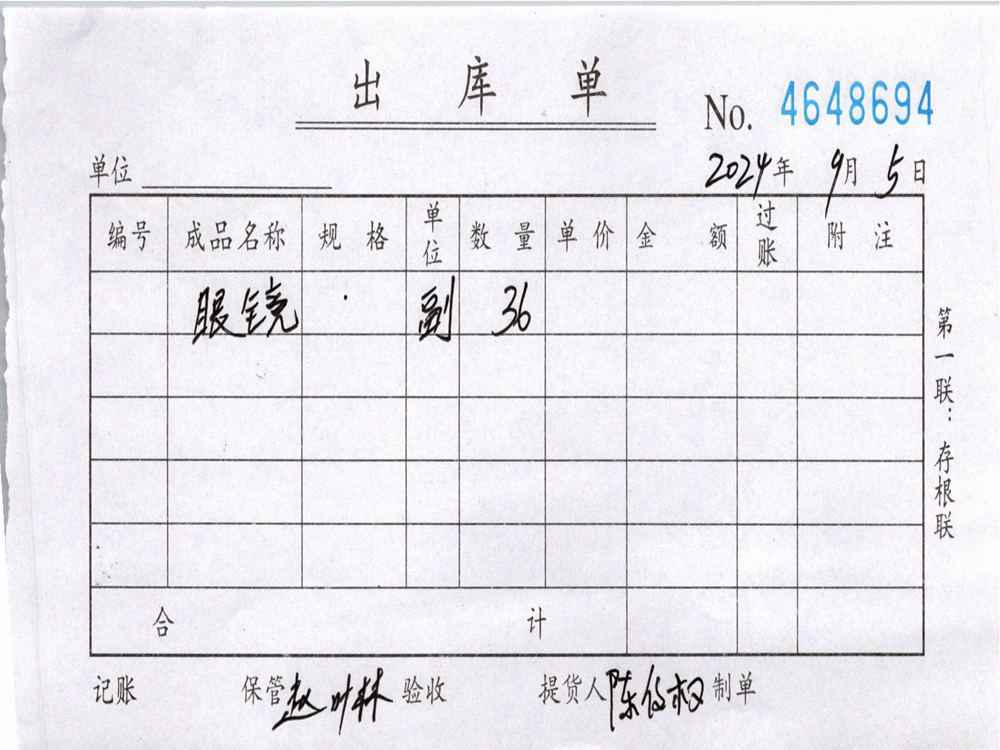 出库单
No. 4648694
单位 2024年9月5日
编号 成品名称 规格 单位 数量 单价 金额 过账 附注
眼镜 副 36
合计
记账 保管 赵叶林 验收 提货人 陈 权 制单
第一联：存根联